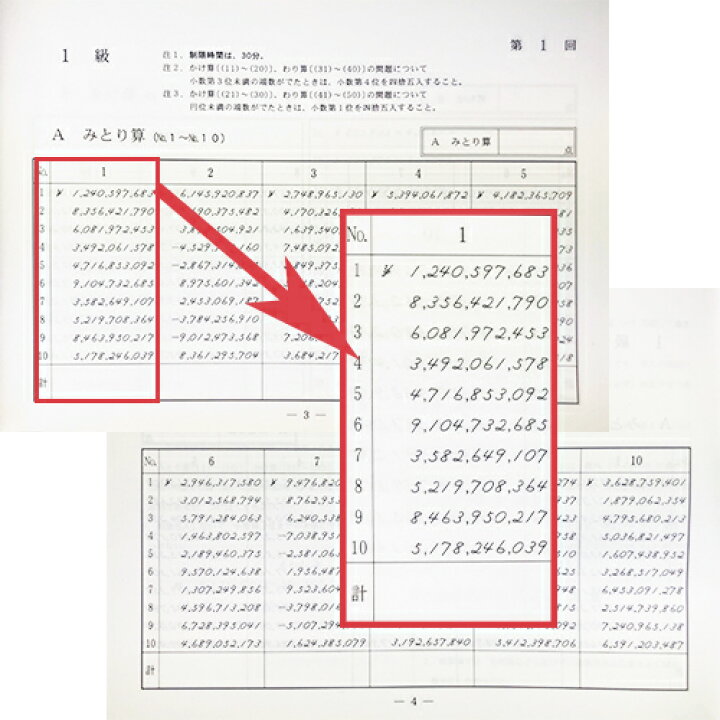 1 級
第 1 回
注1．制限時間は、30分。
注2．かけ算〔(11)～(20)〕、わり算〔(31)～(40)〕の問題について
小数第3位未満の端数がでたときは、小数第4位を四捨五入すること。
注3．かけ算〔(21)～(30)〕、わり算〔(41)～(50)〕の問題について
円位未満の端数がでたときは、小数第1位を四捨五入すること。
A みとり算 (No.1～No.10)
A みとり算 点
No. 1 2 3 4 5
1 ¥ 1,240,597,683 6,145,920,837 ¥ 2,748,965,130 ¥ 5,394,061,872 ¥ 4,182,365,709
2 8,356,421,790 4,170,326
3 6,081,972,453 1,639,540
4 3,492,061,578 7,485,092
5 4,716,853,092
6 9,104,732,685 8,975,601,342
7 3,582,649,107 2,453,069,187
8 5,219,708,364 -3,784,256,910
9 8,463,950,217 -9,012,473,568 7,206
10 5,178,246,039 8,361,295,704 3,684,217
計
― 3 ―
No. 1
1 ¥ 1,240,597,683
2 8,356,421,790
3 6,081,972,453
4 3,492,061,578
5 4,716,853,092
6 9,104,732,685
7 3,582,649,107
8 5,219,708,364
9 8,463,950,217
10 5,178,246,039
計
No. 6 7 10
1 ¥ 2,946,317,580 ¥ 9,476,820 274 ¥ 3,628,759,401
2 3,012,568,794 8,762,953 937 1,879,062,354
3 5,791,284,063 6,240,538 4,795,680,213
4 1,463,802,597 -7,038,951 758 5,036,821,497
5 2,189,460,375 -2,581,063 1,607,438,952
6 9,570,124,638 1,956,487 625 3,268,517,049
7 1,307,249,856 9,523,604 948 6,453,091,278
8 4,596,713,208 -3,798,016 815 2,514,739,860
9 6,728,395,041 -5,107,294 7,240,965,138
10 4,689,052,173 1,624,385,079 3,192,657,840 5,412,398,706 6,591,203,487
計
― 4 ―